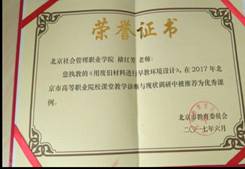 荣誉证书
北京社会管理职业学院 褚红芳 老师:
您执教的《用废旧材料进行早教环境设计》,在 2017 年北
京市高等职业院校课堂教学诊断与现状调研中被推荐为优秀课
例。
北京市教育委员会
二〇一七年六月